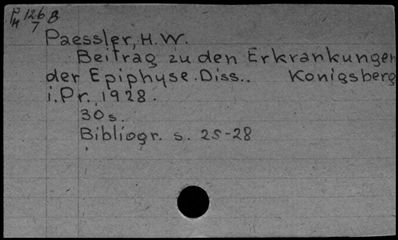 P 126 B
M 7
Paessler, H.W.
Beitrag zu den Erkrankungen
der Epiphyse. Diss.. Konigsberg
i.Pr., 1928.
30s.
Bibliogr. s. 25-28